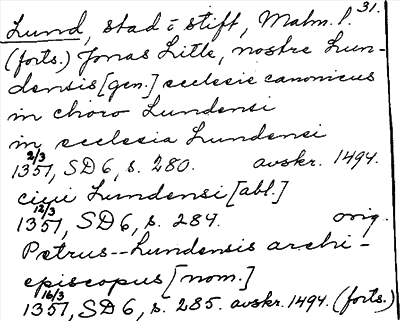 31.
Lund, stad o stift, Malm. l.
(forts.) Jonas Litle, nostre Lun-
densis [gen.] ecclesie canonicus
in choro Lundensi
in ecclesia Lundensi
1351 2/3, SD 6, s. 280. avskr. 1494.
ciui Lundensi [abl.]
1351 12/3, SD 6, s. 284. orig.
Petrus -- Lundensis archi-
episcopus [nom.]
1351 16/3, SD 6, s. 285. avskr. 1494. (forts.)